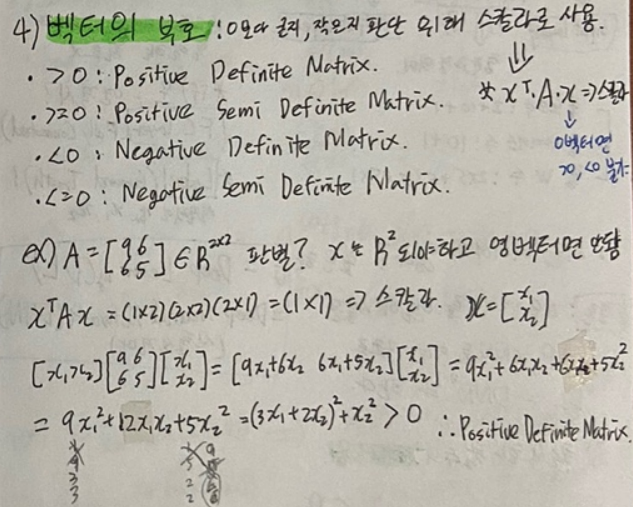 4) 벡터의 부호 : 0보다 큰지, 작은지 판단 위해 스칼라로 사용.
· >0 : Positive Definite Matrix.
⇓
· >=0 : Positive Semi Definite Matrix. * xᵀ·A·x ⇒ 스칼라
· <0 : Negative Definite Matrix. ↓ 0벡터면
· <=0 : Negative Semi Definite Matrix. >0, <0 불가
ex) A = [9 6; 6 5] ∈ R²ˣ² 판별? x는 R² 되야하고 영벡터면 안됨
xᵀAx = (1×2)(2×2)(2×1) = (1×1) ⇒ 스칼라. x = [x₁; x₂]
[x₁ x₂][9 6; 6 5][x₁; x₂] = [9x₁+6x₂ 6x₁+5x₂][x₁; x₂] = 9x₁²+6x₁x₂+6x₁x₂+5x₂²
= 9x₁²+12x₁x₂+5x₂² = (3x₁+2x₂)²+x₂² > 0 ∴ Positive Definite Matrix.
3 2
3 2